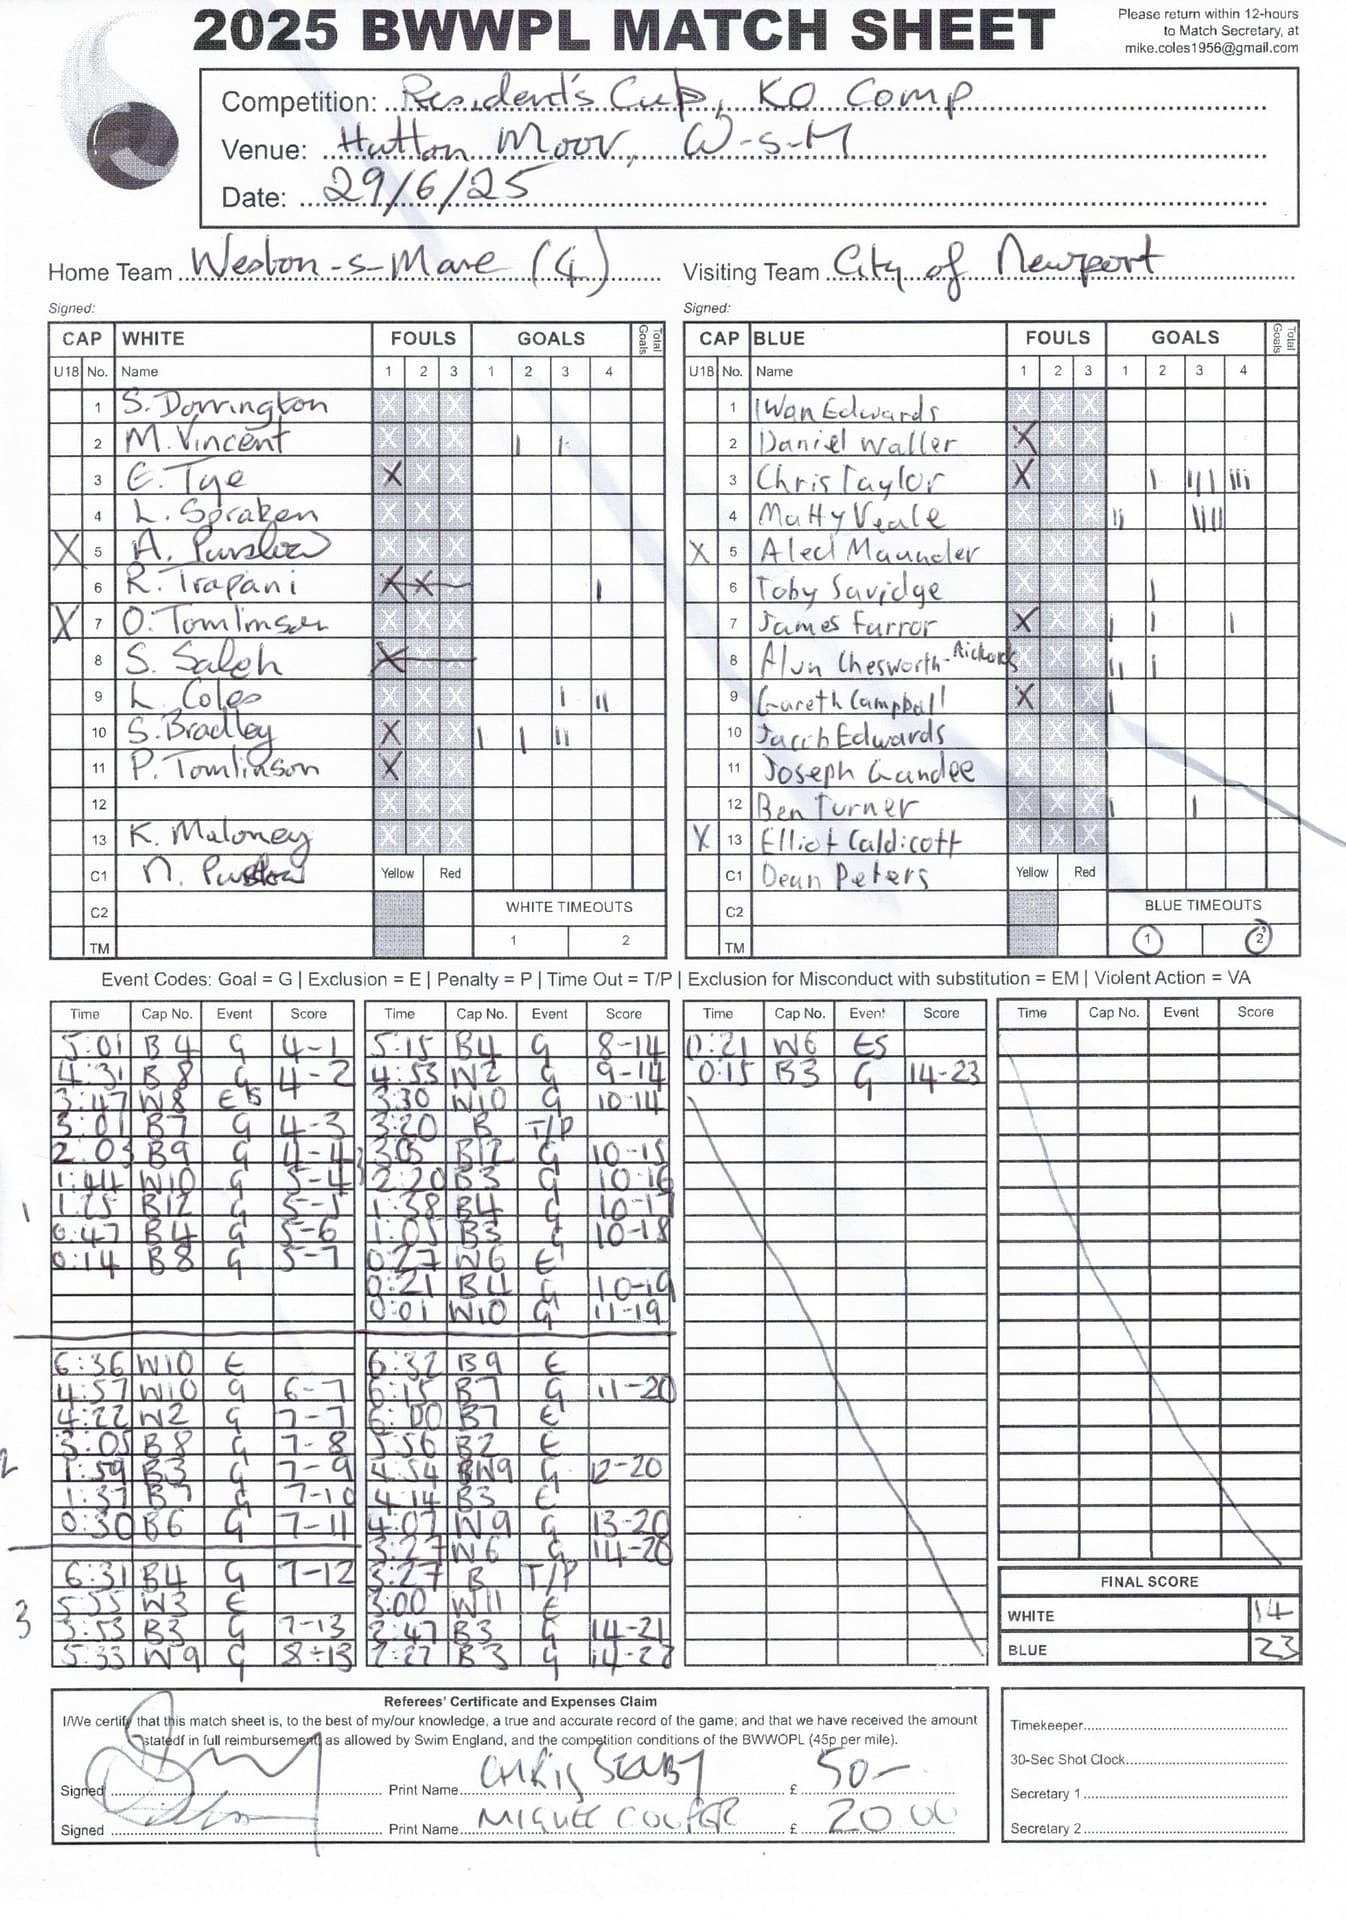 2025 BWWPL MATCH SHEET
Please return within 12-hours
to Match Secretary, at
mike.coles1956@gmail.com
Competition: Resident's Cup, KO Comp
Venue: Hutton Moor, W-S-M
Date: 29/6/25
Home Team Weston-s-Mare (4) Visiting Team City of Newport
Signed: Signed:
CAP WHITE FOULS GOALS Total Goals
U18 No. Name 1 2 3 1 2 3 4
1 S. Dorrington X X X
2 M. Vincent X X X | |
3 E. Tye X X X
4 L. Spraken X X X
X 5 A. Purslow X X X
6 R. Trapani X X |
X 7 O. Tomlinson X X X
8 S. Saleh X
9 L. Coles X X X | ||
10 S. Bradley X X X | | ||
11 P. Tomlinson X X X
12 X X X
13 K. Maloney X X X
C1 N. Purslow Yellow Red
C2 WHITE TIMEOUTS
TM 1 2
CAP BLUE FOULS GOALS Total Goals
U18 No. Name 1 2 3 1 2 3 4
1 Iwan Edwards X X X
2 Daniel Waller X X X
3 Chris Taylor X X X | ||| |||
4 Matty Veale X X X || ||||
X 5 Aled Maunder X X X
6 Toby Savidge X X X |
7 James Farror X X X | | |
8 Alun Chesworth-Rickards X X || |
9 Gareth Campball X X X |
10 Jacob Edwards X X X
11 Joseph Gandee X X X
12 Ben Turner X X X | |
X 13 Elliot Caldicott X X X
C1 Dean Peters Yellow Red
C2 BLUE TIMEOUTS
TM 1 2
Event Codes: Goal = G | Exclusion = E | Penalty = P | Time Out = T/P | Exclusion for Misconduct with substitution = EM | Violent Action = VA
Time Cap No. Event Score
5:01 B4 G 4-1
4:31 B8 G 4-2
3:47 W8 ES
3:01 B7 G 4-3
2:03 B9 G 4-4
1:44 W10 G 5-4
1
1:25 B12 G 5-5
0:47 B4 G 5-6
0:14 B8 G 5-7
6:36 W10 E
4:57 W10 G 6-7
4:22 W2 G 7-7
3:05 B8 G 7-8
2
1:59 B3 G 7-9
1:37 B7 G 7-10
0:30 B6 G 7-11
6:31 B4 G 7-12
5:55 W3 E
3
5:53 B3 G 7-13
5:33 W9 G 8-13
Time Cap No. Event Score
5:15 B4 G 8-14
4:53 W2 G 9-14
3:30 W10 G 10-14
3:20 B T/P
3:05 B12 G 10-15
2:20 B3 G 10-16
1:38 B4 G 10-17
1:05 B3 G 10-18
0:27 W6 E
0:21 B4 G 10-19
0:01 W10 G 11-19
6:32 B9 E
6:15 B7 G 11-20
6:00 B7 E
5:56 B2 E
4:54 W9 G 12-20
4:14 B3 E
4:07 W9 G 13-20
3:27 W6 G 14-20
3:27 B T/P
3:00 W11 E
2:47 B3 G 14-21
2:27 B3 G 14-22
Time Cap No. Event Score
0:21 W6 ES
0:15 B3 G 14-23
Time Cap No. Event Score
FINAL SCORE
WHITE 14
BLUE 23
Referees' Certificate and Expenses Claim
I/We certify that this match sheet is, to the best of my/our knowledge, a true and accurate record of the game; and that we have received the amount
statedf in full reimbursement, as allowed by Swim England, and the competition conditions of the BWWOPL (45p per mile).
Signed Print Name CHRIS £ 50-
Signed Print Name MIGUEL £ 20.00
Timekeeper
30-Sec Shot Clock
Secretary 1
Secretary 2